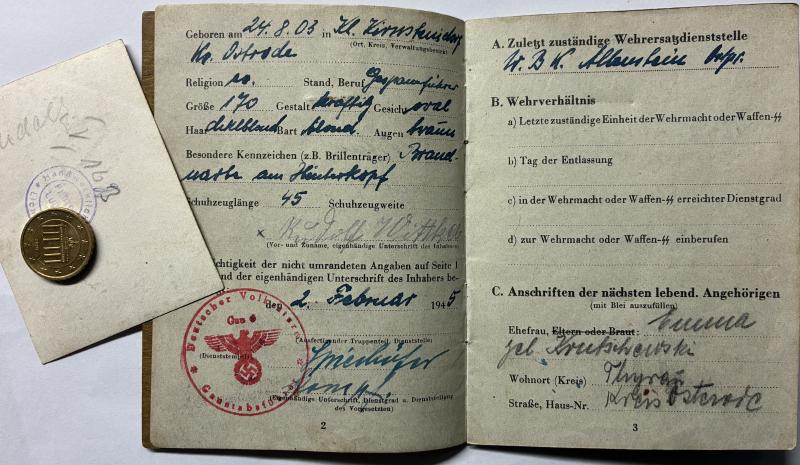 Geboren am 24.8.03 in Kl.
Kr. Ostrode (Ort, Kreis, Verwaltungsbezirk)
Religion ev. Stand, Beruf Gespannführer
Größe 170 Gestalt kräftig Gesicht oval
Haar dklblond Bart blond Augen braun
Besondere Kennzeichen (z.B. Brillenträger) Brand-
narbe am Hinterkopf
Schuhzeuglänge 45 Schuhzeugweite
x Rudolf
(Vor- und Zuname, eigenhändige Unterschrift des Inhabers)
chtigkeit der nicht umrandeten Angaben auf Seite 1
nd der eigenhändigen Unterschrift des Inhabers be-
den 2. Februar 1945
(Ausfertigender Truppenteil, Dienststelle)
(Dienststempel)
(Eigenhändige Unterschrift, Dienstgrad u. Dienststellung
des Vorgesetzten)
2
Deutscher Volkssturm
Gau
Gaustabsführer
A. Zuletzt zuständige Wehrersatzdienststelle
W.B.K. Allenstein Ostpr.
B. Wehrverhältnis
a) Letzte zuständige Einheit der Wehrmacht oder Waffen-SS
b) Tag der Entlassung
c) in der Wehrmacht oder Waffen-SS erreichter Dienstgrad
d) zur Wehrmacht oder Waffen-SS einberufen
C. Anschriften der nächsten lebend. Angehörigen
(mit Blei auszufüllen)
Ehefrau, Eltern oder Braut: Emma
geb.
Wohnort (Kreis) Thyrau
Straße, Haus-Nr. Kreis Osterode
3